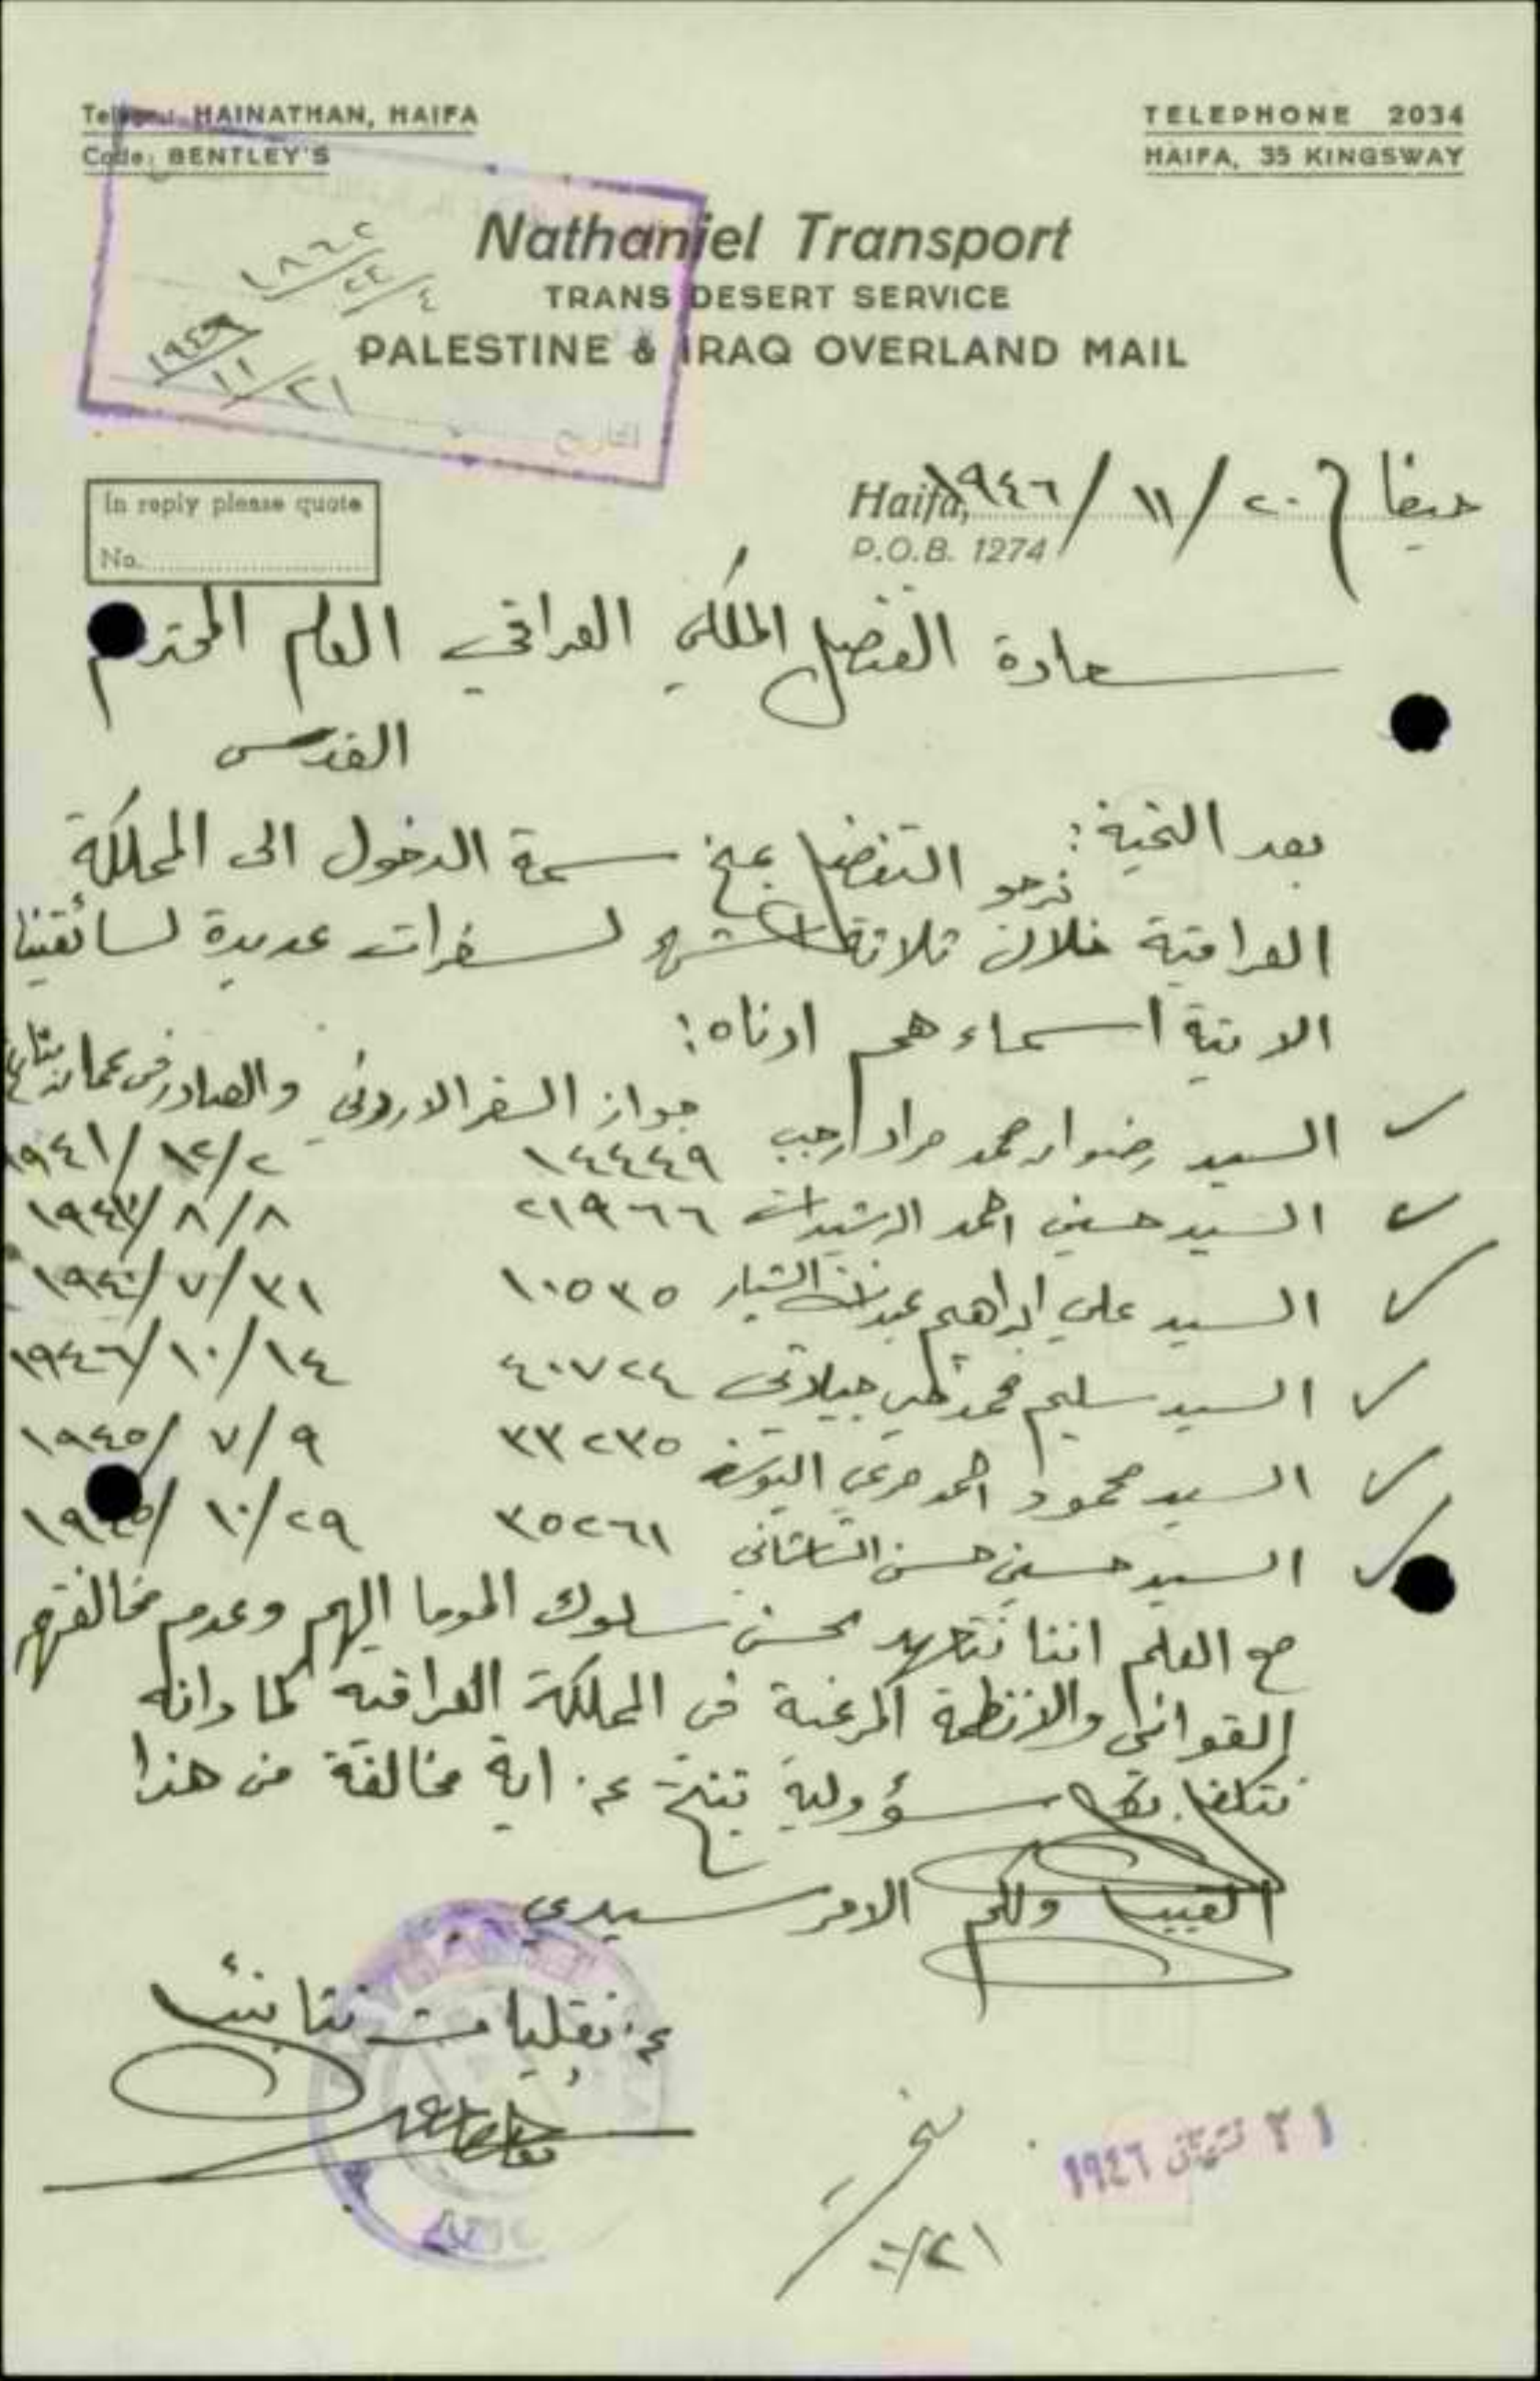 Telegr.: HAINATHAN, HAIFA
Code: BENTLEY'S
TELEPHONE 2034
HAIFA, 35 KINGSWAY
Nathaniel Transport
TRANS DESERT SERVICE
PALESTINE & IRAQ OVERLAND MAIL
١٨٦٢
٢٢/٤
١٩٤٦
١١/٢١
In reply please quote
No.
Haifa,
P.O.B. 1274
حيفا في ٢٠/١١/١٩٤٦
سعادة القنصل الملكي العراقي العام المحترم
القدس
بعد التحية:
نرجو التفضل بمنح سمة الدخول الى المملكة
العراقية خلال ثلاثة اشهر لسفرات عديدة لسائقينا
الاتية اسماءهم ادناه:
جواز السفر الاردني والصادر في عمان بتاريخ
السيد رضوان محمد مراد رجب ١٤٤٤٩ ٢/١٢/١٩٤١
السيد حسين احمد الرشيدات ٢١٩٦٦ ٨/٨/١٩٤٣
السيد علي ابراهيم ١٠٥٣٥ ٣١/٧/١٩٤٠
السيد سليم محمد جيلاتي ٤٠٧٢٤ ١٤/١٠/١٩٤٦
السيد محمود احمد مرعي اليوسف ٣٣٢٣٥ ٩/٧/١٩٤٥
السيد حسين حسن الششاني ٣٥٢٦١ ٢٩/١٠/١٩٤٥
مع العلم اننا نتعهد بحسن سلوك الموما اليهم وعدم مخالفتهم
القوانين والانظمة المرعية في المملكة العراقية كما وانه
نتكفل بكل مسؤولية تنتج عن اية مخالفة من هذا
القبيل ولكم الامر سيدي
عن نقليات نتانئيل
٢١ تشرين ١٩٤٦
٢١/١١